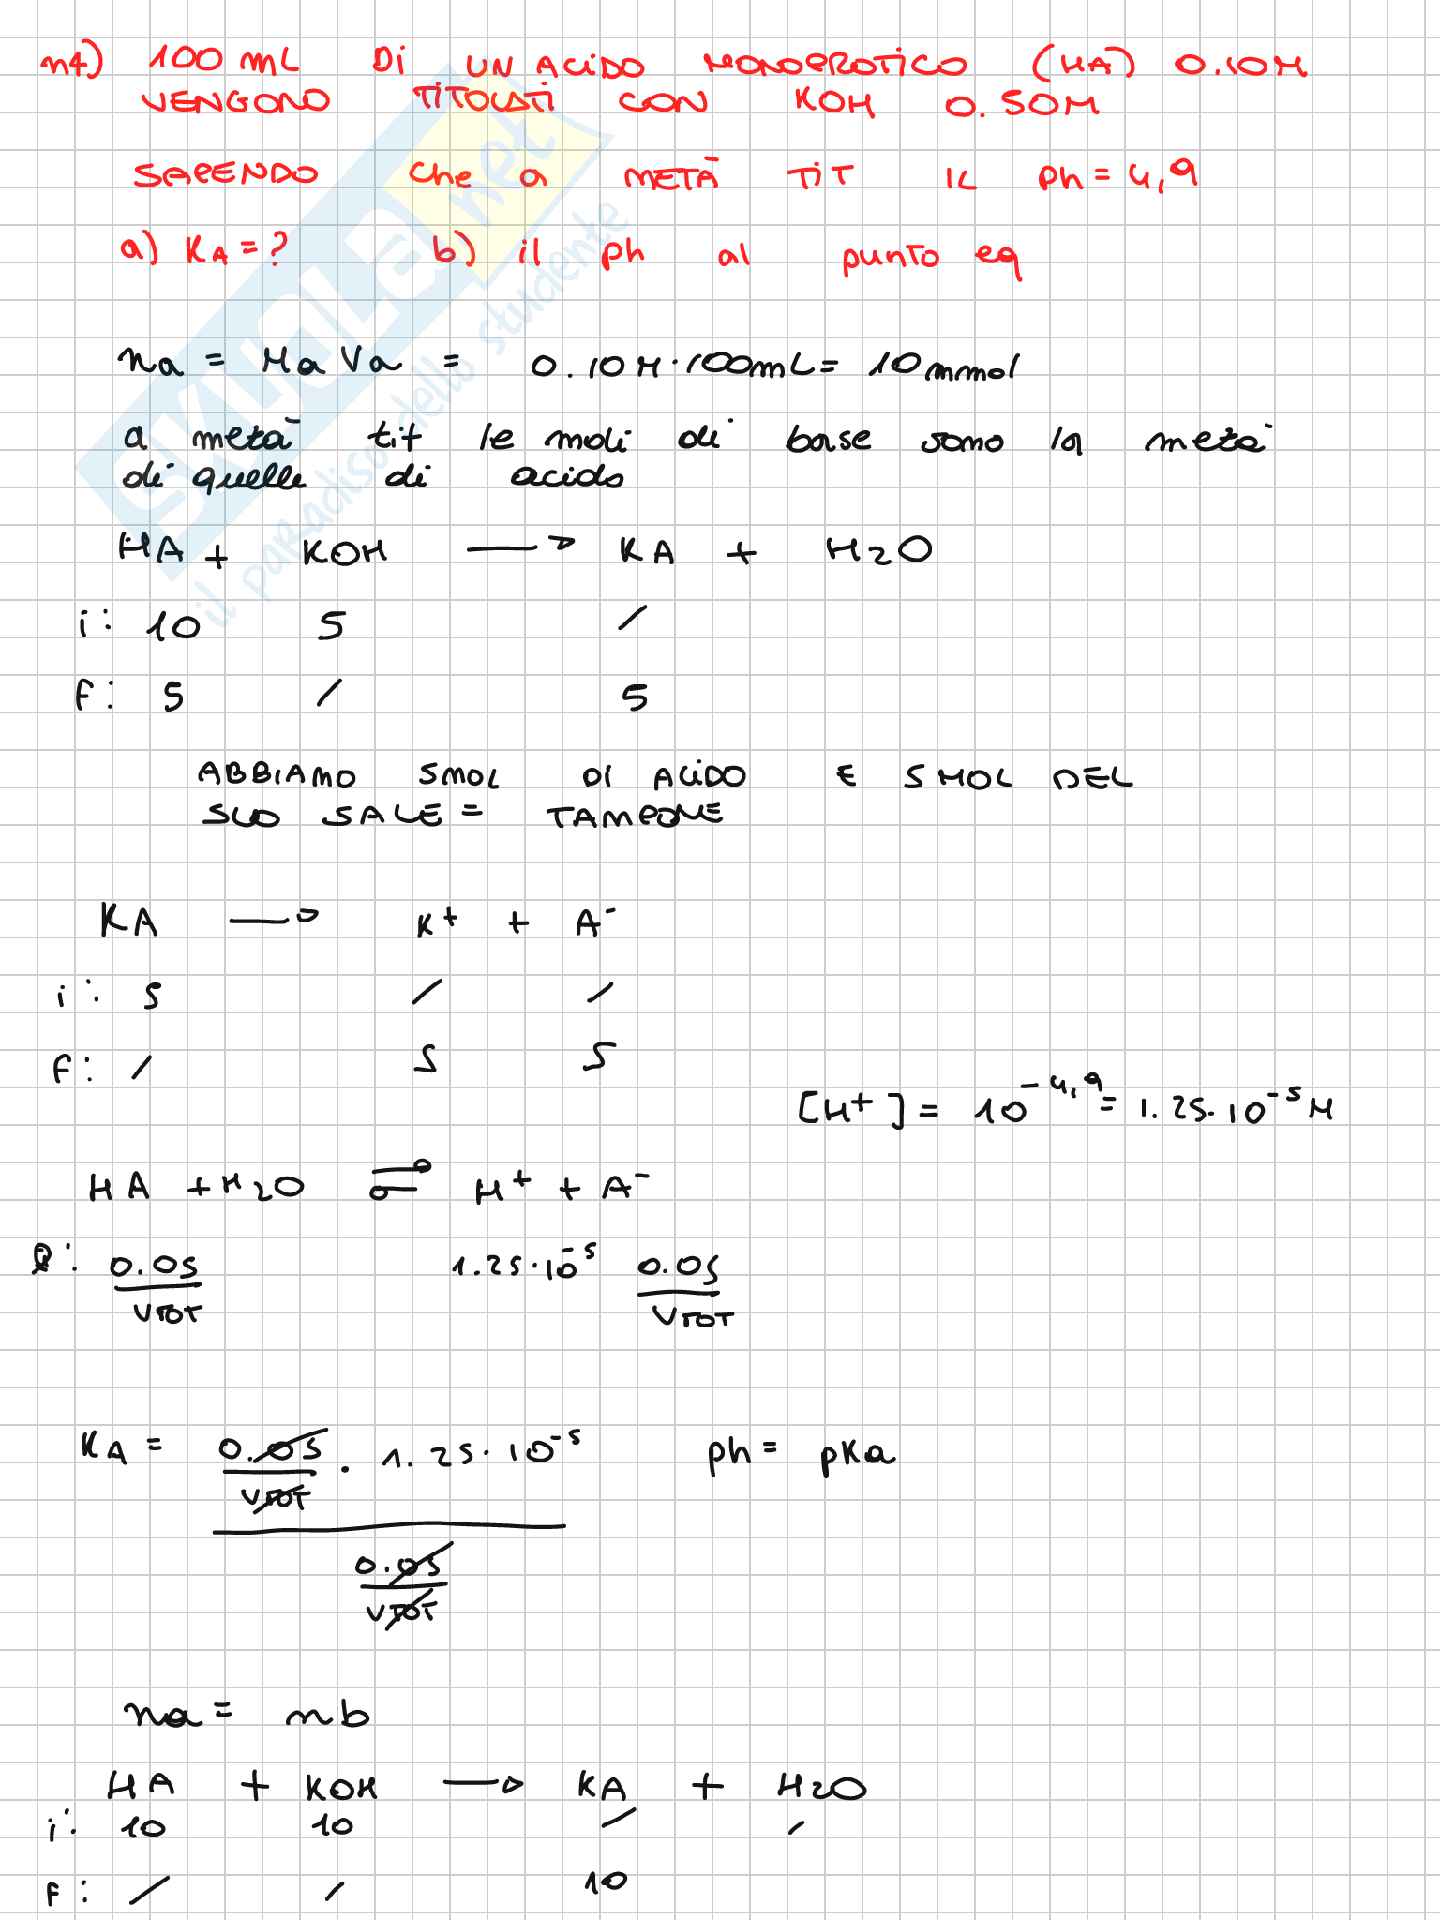 n4) 100 mL Di UN ACIDO MONOPROTICO (HA) 0.10M
VENGONO TITOLATI CON KOH 0.50M
SAPENDO che a METÀ TIT IL ph = 4,9
a) KA = ? b) il ph al punto eq
na = Ma Va = 0.10M · 100mL = 10 mmol
a metà tit le moli di base sono la metà
di quelle di acido
HA + KOH → KA + H2O
i: 10 5 /
F: 5 / 5
ABBIAMO 5MOL DI ACIDO E 5 MOL DEL
SUO SALE = TAMPONE
KA → K+ + A-
i: 5 / /
F: / 5 5
[H+] = 10^-4,9 = 1.25·10^-5 M
HA + H2O ⇌ H+ + A-
e: 0.05/VTOT 1.25·10^-5 0.05/VTOT
KA = 0.05/VTOT · 1.25·10^-5 ph = pKa
0.05/VTOT
na = nb
HA + KOH → KA + H2O
i: 10 10 / /
F: / / 10
SKUOLA.net
il paradiso dello studente